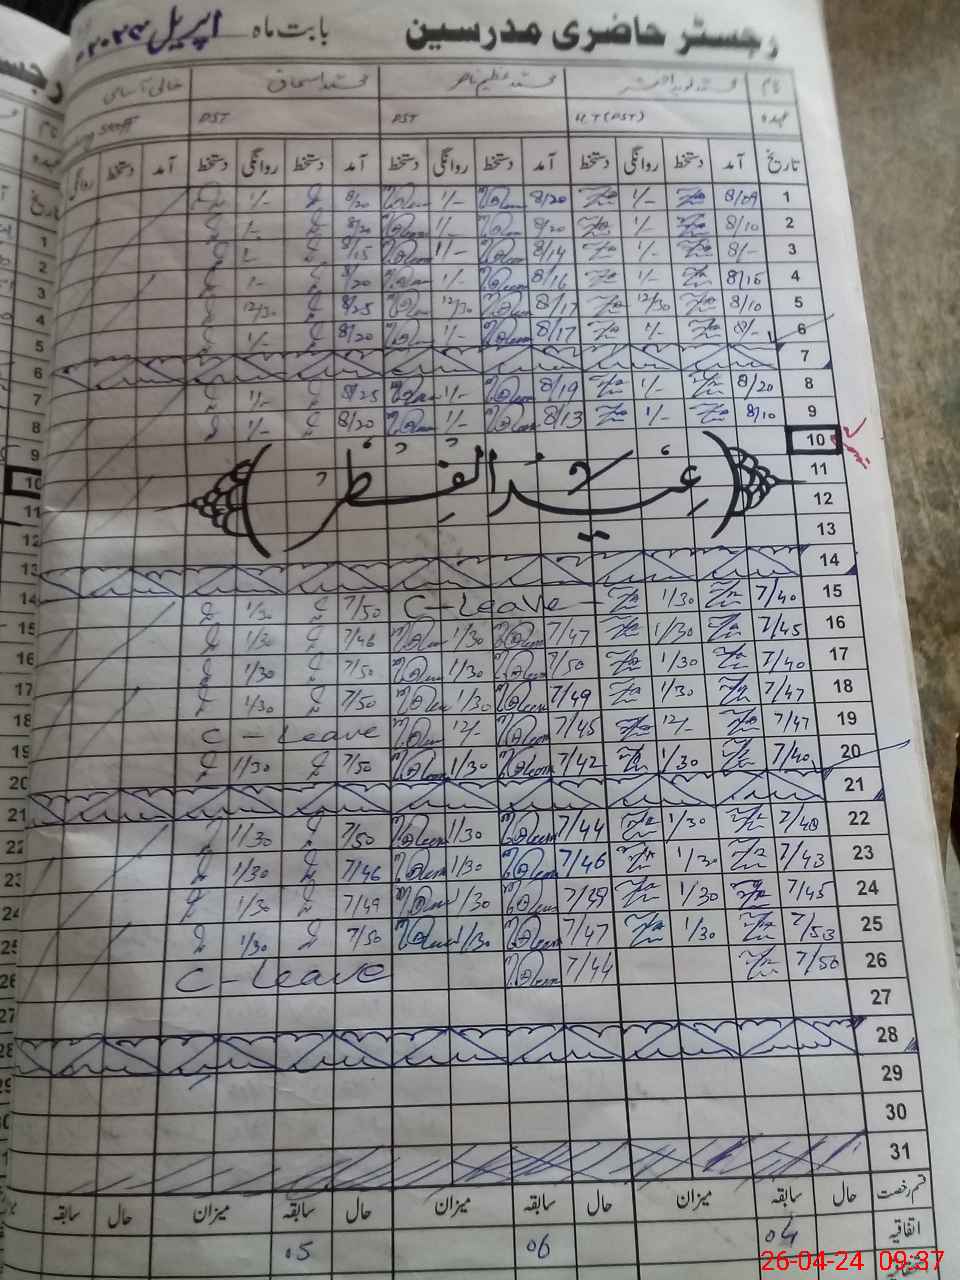 رجسٹر حاضری مدرسین بابت ماہ اپریل 2024
نام محمد عظیم ناصر محمد اسحاق خالی آسامی
عہدہ H.T (PST) PST PST
تاریخ آمد دستخط روانگی دستخط آمد دستخط روانگی دستخط آمد دستخط روانگی دستخط آمد دستخط روانگی
1 8/09 1/- 8/20 1/- 8/20 1/-
2 8/10 1/- 8/20 1/- 8/20 1/-
3 8/- 1/- 8/14 1/- 8/15 1/-
4 8/15 1/- 8/16 1/- 8/20 1/-
5 8/10 12/30 8/17 12/30 8/25 12/30
6 8/- 1/- 8/17 1/- 8/20 1/-
7
8 8/20 1/- 8/19 1/- 8/25 1/-
9 8/10 1/- 8/13 1/- 8/20 1/-
10
11 عید الفطر
12
13
14
15 7/40 1/30 C-Leave 7/50 1/30
16 7/45 1/30 7/47 1/30 7/46 1/30
17 7/40 1/30 7/50 1/30 7/50 1/30
18 7/47 1/30 7/49 1/30 7/50 1/30
19 7/47 12/- 7/45 12/- C-Leave
20 7/40 1/30 7/42 1/30 7/50 1/30
21
22 7/48 1/30 7/44 1/30 7/50 1/30
23 7/43 1/30 7/46 1/30 7/46 1/30
24 7/45 1/30 7/49 1/30 7/49 1/30
25 7/53 1/30 7/47 1/30 7/50 1/30
26 7/50 7/44 C-Leave
27
28
29
30
31
قسم رخصت حال سابقہ میزان حال سابقہ میزان حال سابقہ میزان حال سابقہ
اتفاقیہ 04 06 05
26-04-24 09:37